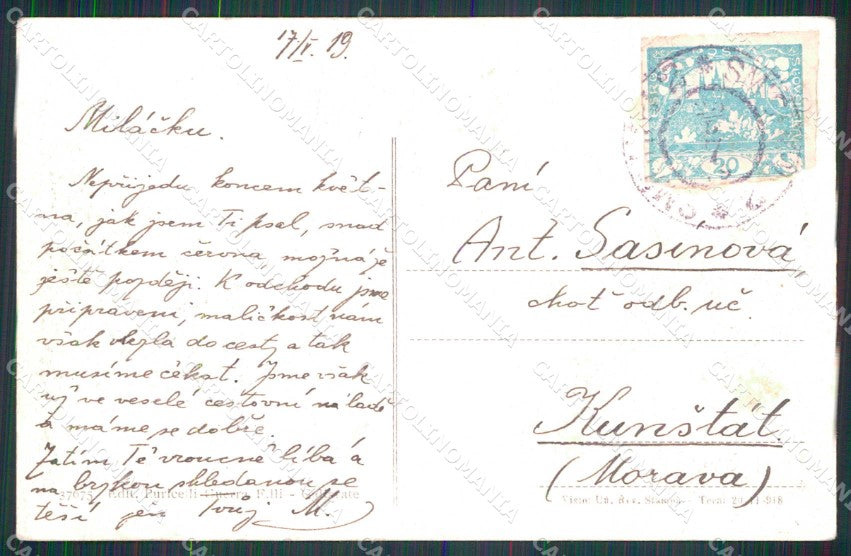 17/V. 19.
Miláčku.
Nepřijedu koncem květ-
na, jak jsem Ti psal, snad
počátkem června, možná že
ještě později. K odchodu jsme
připraveni, maličkost nám
však vlezla do cesty, a tak
musíme čekat. Jsme však
již ve veselé cestovní náladě
a máme se dobře.
Zatím Tě vroucně líbá a
na brzkou shledanou se
těší jen Tvůj M.
37075 - Edit. Puricelli Guerra F.lli -
20
Paní
Ant. Sasinová,
choť odb. uč.
Kunštát
(Morava)
Visto: Uff. Rev. Stampa - 918
CARTOLINOMANIA